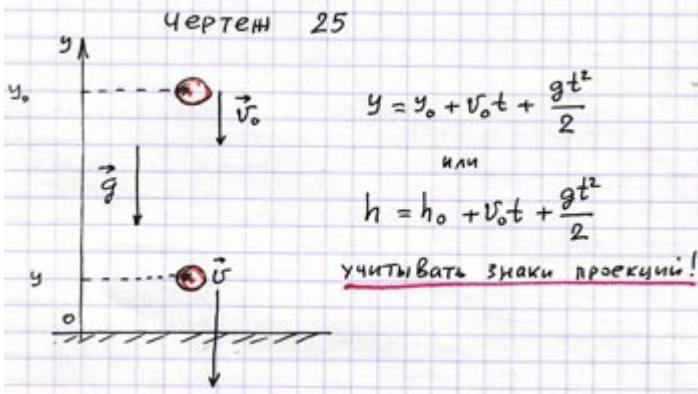 Чертеж 25
y
y₀
v⃗₀
y = y₀ + v₀t + gt²/2
или
g⃗
h = h₀ + v₀t + gt²/2
учитывать знаки проекций!
y
v⃗
0